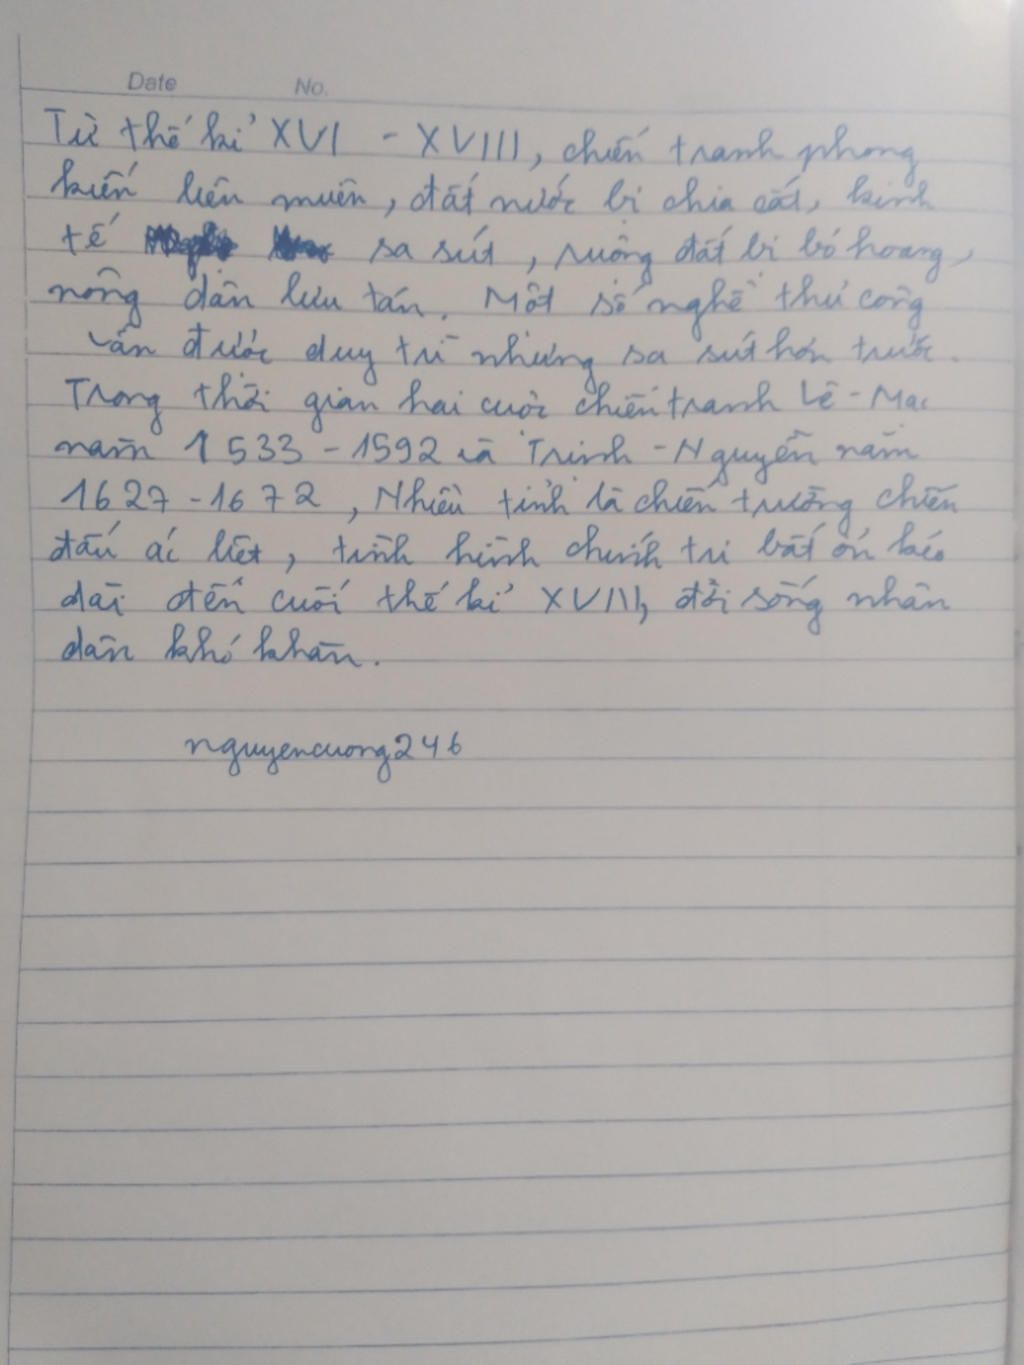 Date No.
Từ thế kỉ XVI - XVIII, chiến tranh phong
kiến liên miên, đất nước bị chia cắt, kinh
tế sa sút, ruộng đất bị bỏ hoang,
nông dân lưu tán. Một số nghề thủ công
vẫn được duy trì nhưng sa sút hơn trước.
Trong thời gian hai cuộc chiến tranh Lê - Mạc
năm 1533 - 1592 và Trịnh - Nguyễn năm
1627 - 1672, Nhiều tỉnh là chiến trường chiến
đấu ác liệt, tình hình chính trị bất ổn kéo
dài đến cuối thế kỉ XVIII, đời sống nhân
dân khó khăn.
nguyencuong246